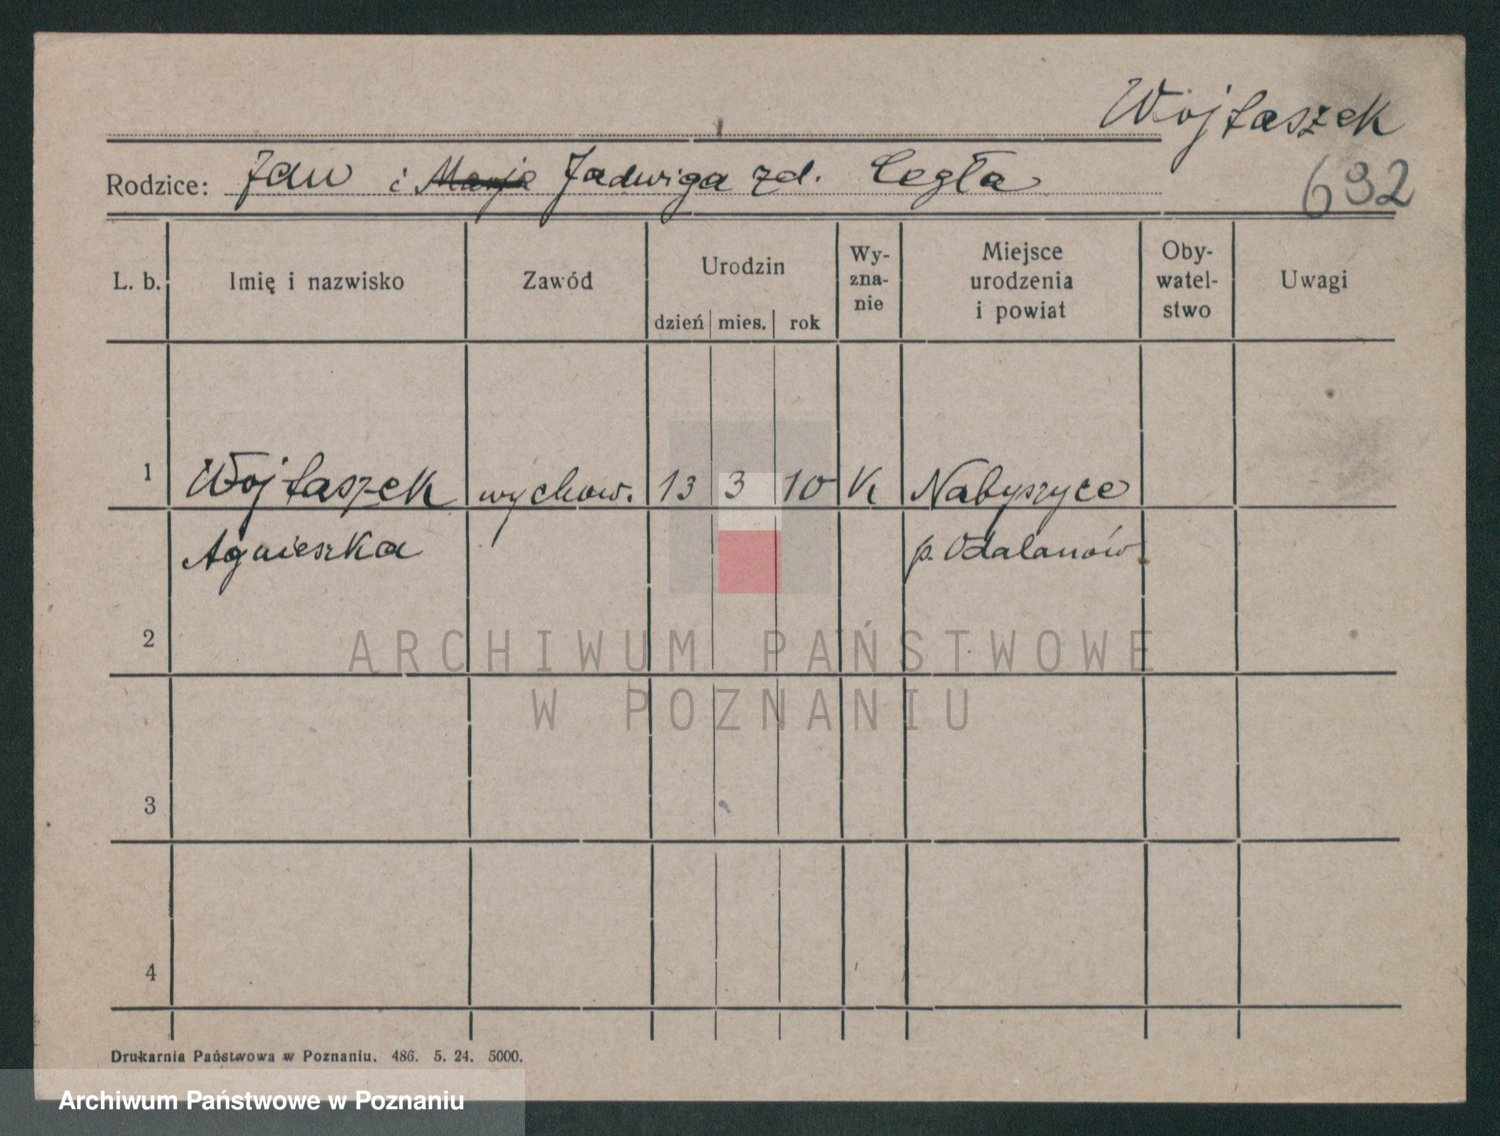 Wojtaszek
Rodzice: Jan i Marja Jadwiga zd. Cegła
692
L. b. Imię i nazwisko Zawód Urodzin dzień mies. rok Wy-zna-nie Miejsce urodzenia i powiat Oby-watel-stwo Uwagi
1 Wojtaszek wychow. 13 3 10 K Nabyszyce
Agnieszka p. Odalanów
2
ARCHIWUM PAŃSTWOWE
W POZNANIU
3
4
Drukarnia Państwowa w Poznaniu. 486. 5. 24. 5000.
Archiwum Państwowe w Poznaniu